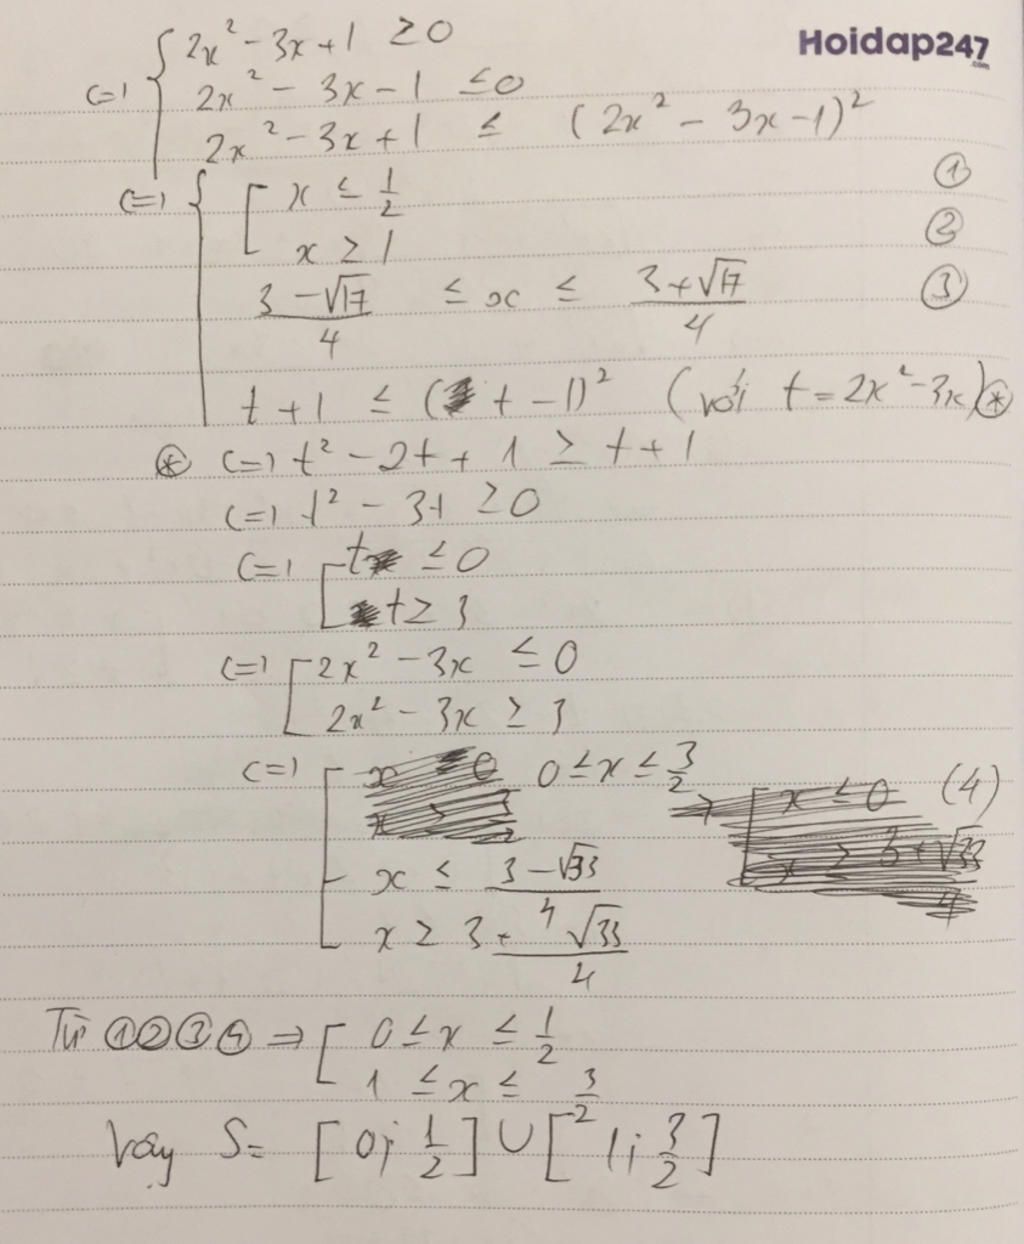 Hoidap247
.com
(=) { 2x² - 3x + 1 ≥ 0
2x² - 3x - 1 ≤ 0
2x² - 3x + 1 ≤ (2x² - 3x - 1)²
(=) { [ x ≤ 1/2 ①
x ≥ 1 ②
(3 - √17)/4 ≤ x ≤ (3 + √17)/4 ③
t + 1 ≤ (t - 1)² (với t = 2x² - 3x) (*)
(*) (=) t² - 2t + 1 ≥ t + 1
(=) t² - 3t ≥ 0
(=) [ t ≤ 0
t ≥ 3
(=) [ 2x² - 3x ≤ 0
2x² - 3x ≥ 3
(=) [ 0 ≤ x ≤ 3/2 (4)
x ≤ (3 - √33)/4
x ≥ (3 + √33)/4
Từ ① ② ③ ④ => [ 0 ≤ x ≤ 1/2
1 ≤ x ≤ 3/2
Vậy S = [0; 1/2] ∪ [1; 3/2]